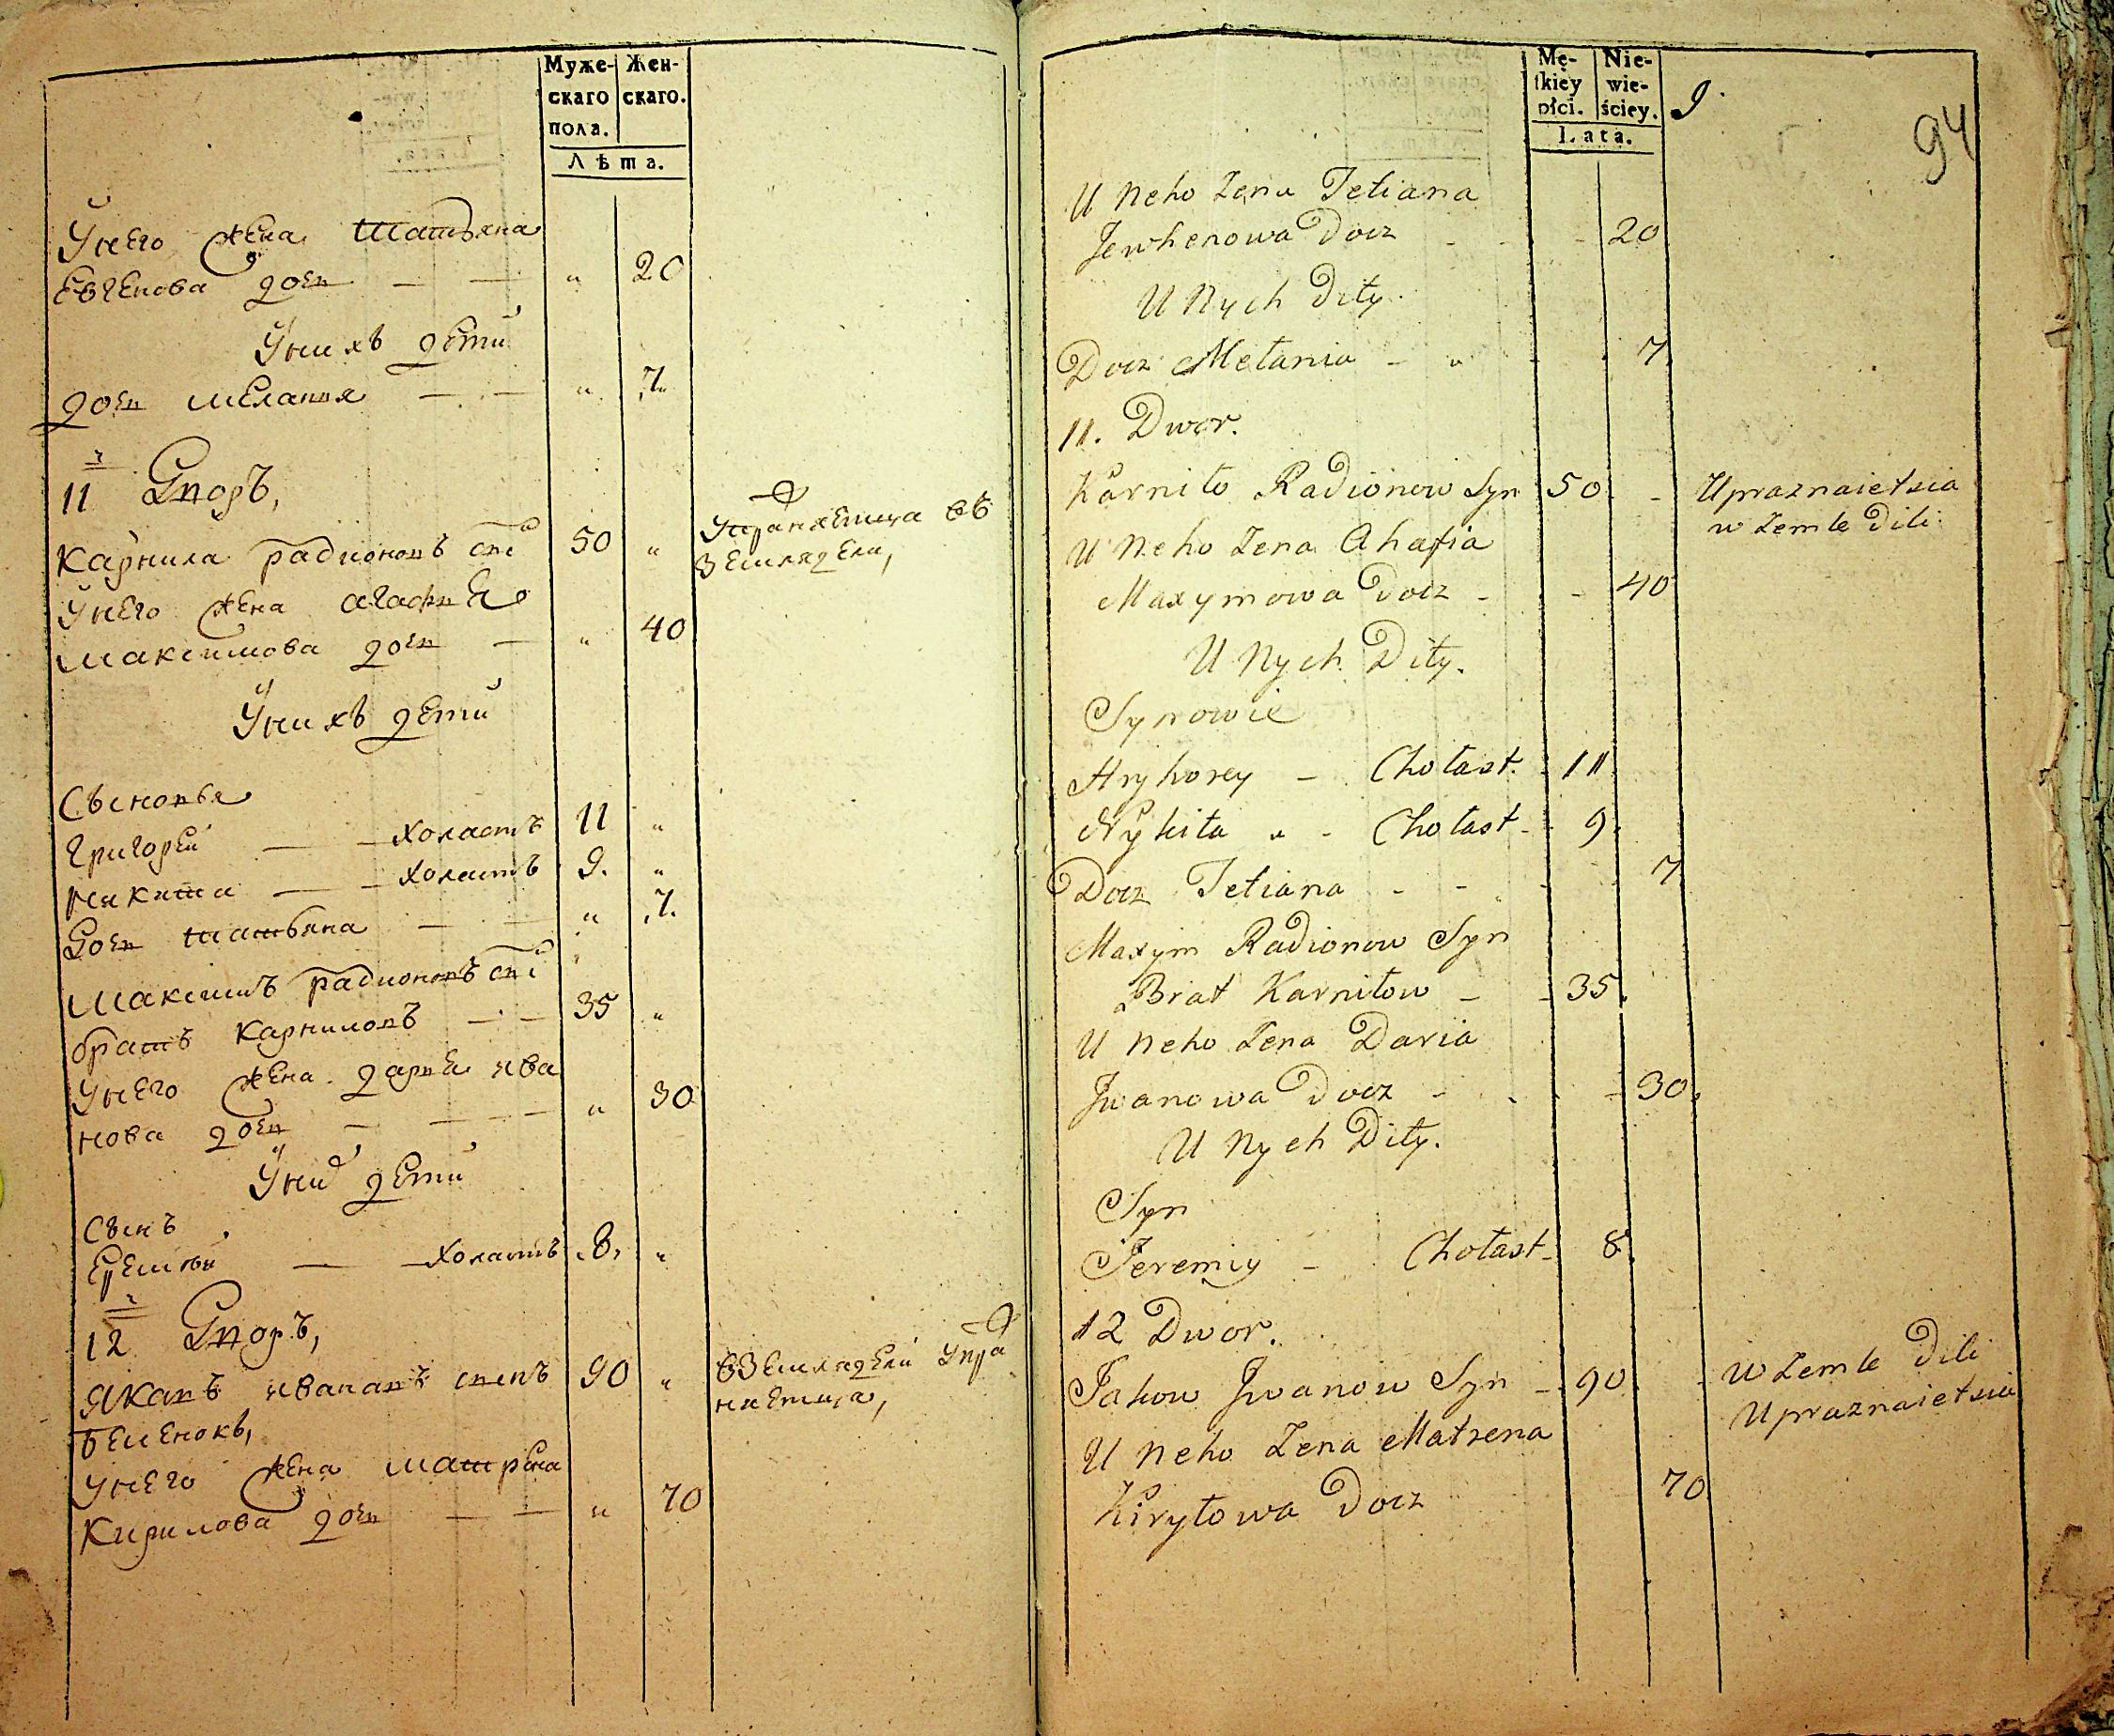 Муже-
скаго
пола.
Жен-
скаго.
Лѣта.
Унего жена татьяна
Евгенова дочъ — — „ 20
Унихъ дети
дочъ мелания — — „ 7
11 Дворъ,
Карнила радионовъ снъ 50 „ Упражняетца въ
земляделии,
Унего жена агафиея
Максимова дочъ — „ 40
Унихъ дети
Сыновья
Григорей — — холастъ 11 „
Никита — — холастъ 9. „
Дочъ татьяна — — „ 7.
Максимъ радионовъ снъ
братъ карниловъ — — 35 „
Унего жена дарея ива
нова дочъ — — — „ 30
Уних дети
Сынъ
Еремей — — холастъ 8, „
12 Дворъ,
Якавъ ивановъ сынъ 90 „ вземляделии упра
няетца,
Унего жена матрена
Кирилова дочъ — — „ 70
Mę-
ſkiey
płci.
Nie-
wie-
ściey.
Lata.
9.
94
U Neho Żena Tetiana
Jewhenowa Docz - - - 20
U Nych Dity.
Docz Mełania - „ - 7
11. Dwor.
Karniło Radionow Syn 50 - Upraznaietsia
w Zemle Dili.
U Neho Żena Ahafia
Maxymowa Docz - - 40
U Nych Dity.
Synowie
Hryhorey - Chołast. 11
Nykita „ - Chołast - 9.
Docz Tetiana - - - 7
Maxym Radionow Syn
Brat Karniłow - - 35.
U Neho Żena Daria
Jwanowa Docz - - - 30.
U Nych Dity.
Syn
Jeremiy - Chołast - 8.
12 Dwor.
Jakow Jwanow Syn - 90 - W Zemle Dili
Upraznaietsia
U Neho Żena Matrena
Kiryłowa Docz 70